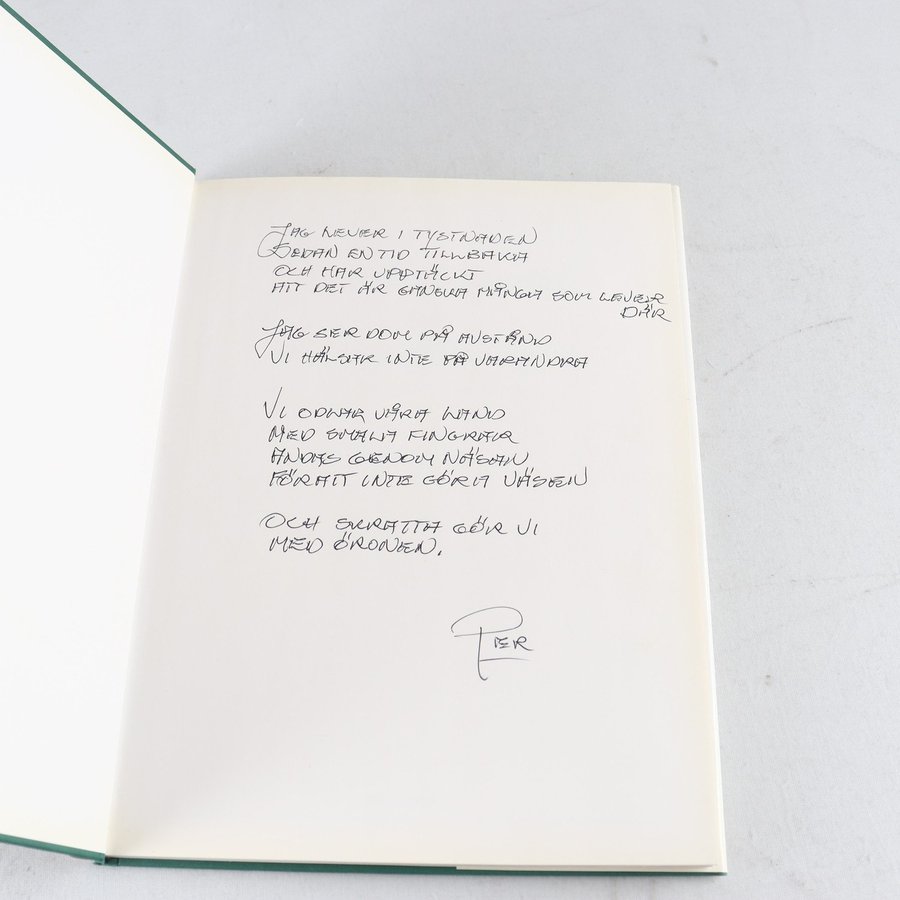 JAG LEVER I TYSTNADEN
SEDAN EN TID TILLBAKA
OCH HAR UPPTÄCKT
ATT DET ÄR GANSKA MÅNGA SOM LEVER
DÄR
JAG SER DOM PÅ AVSTÅND
VI HÄLSAR INTE PÅ VARANDRA
VI ODLAR VÅRA LAND
MED SMALA FINGRAR
ANDAS GENOM NÄSAN
FÖR ATT INTE GÖRA VÄSEN
OCH SKRATTA GÖR VI
MED ÖRONEN.
PER